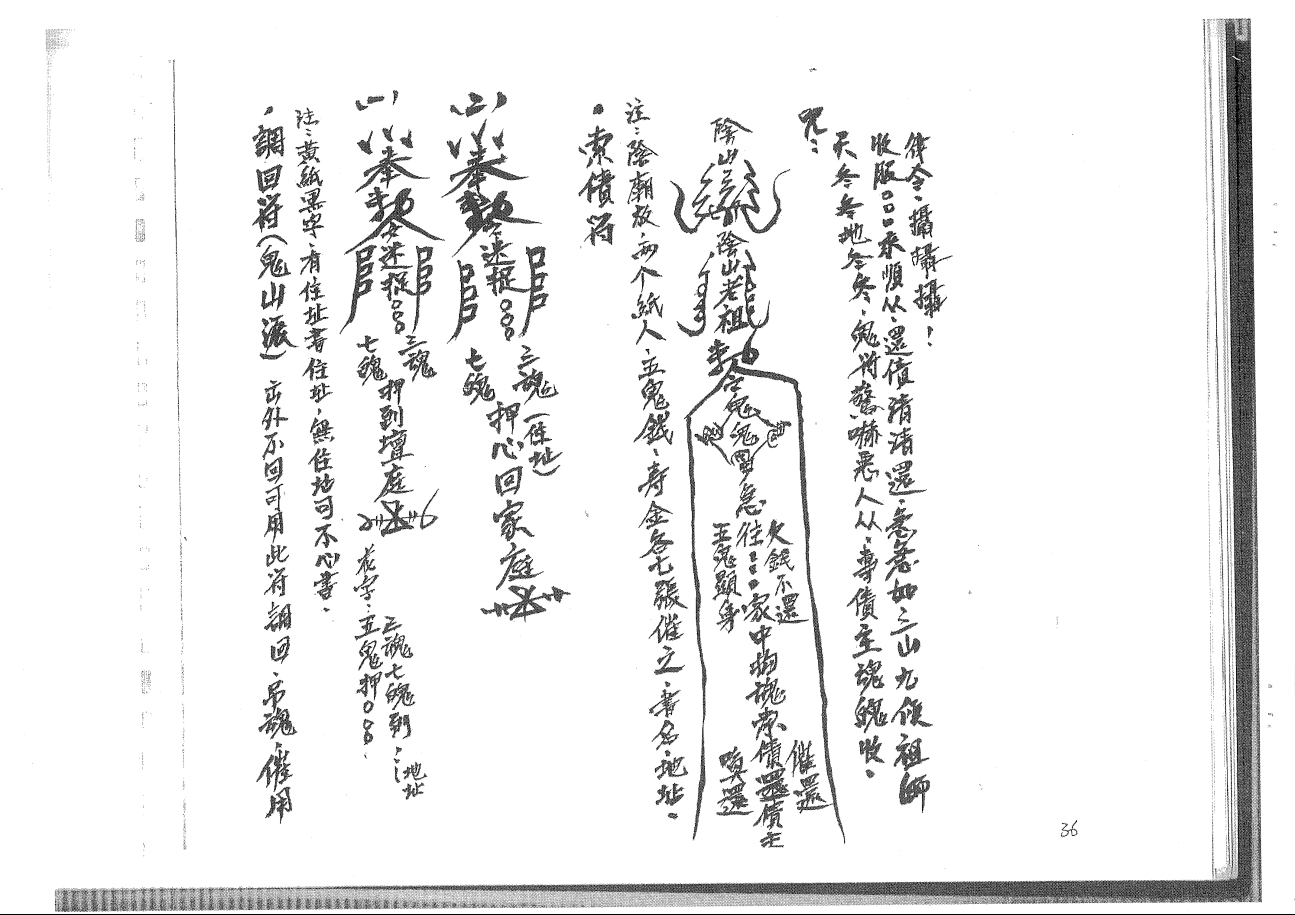 ・調回符(鬼山派) 出外不回可用此符調回、吊魂、催用
注:黃紙黑字、有住址書住址、無住址可不心書。
(一)
奉勅令速捉○○○
三魂
七魄
押到壇庭
花字:五鬼押○○○、
三魂七魄到……地址
(二)
奉勅令速捉○○○
三魂(住址)
七魄
押心回家庭
・索債符
注:陰廟放、两个紙人、五鬼錢、寿金各七張催之、書名、地址。
陰山
陰山老祖
勅令鬼鬼
急往○○○家中拘魂索債還債主
五鬼顯身
欠錢不還
催還
咒:
天冬冬地冬冬、鬼符驚嚇惡人从、專債主魂魄收。
收服○○○来順从、還債清清還、急急如三山九侯祖師
律令、攝攝攝!
36